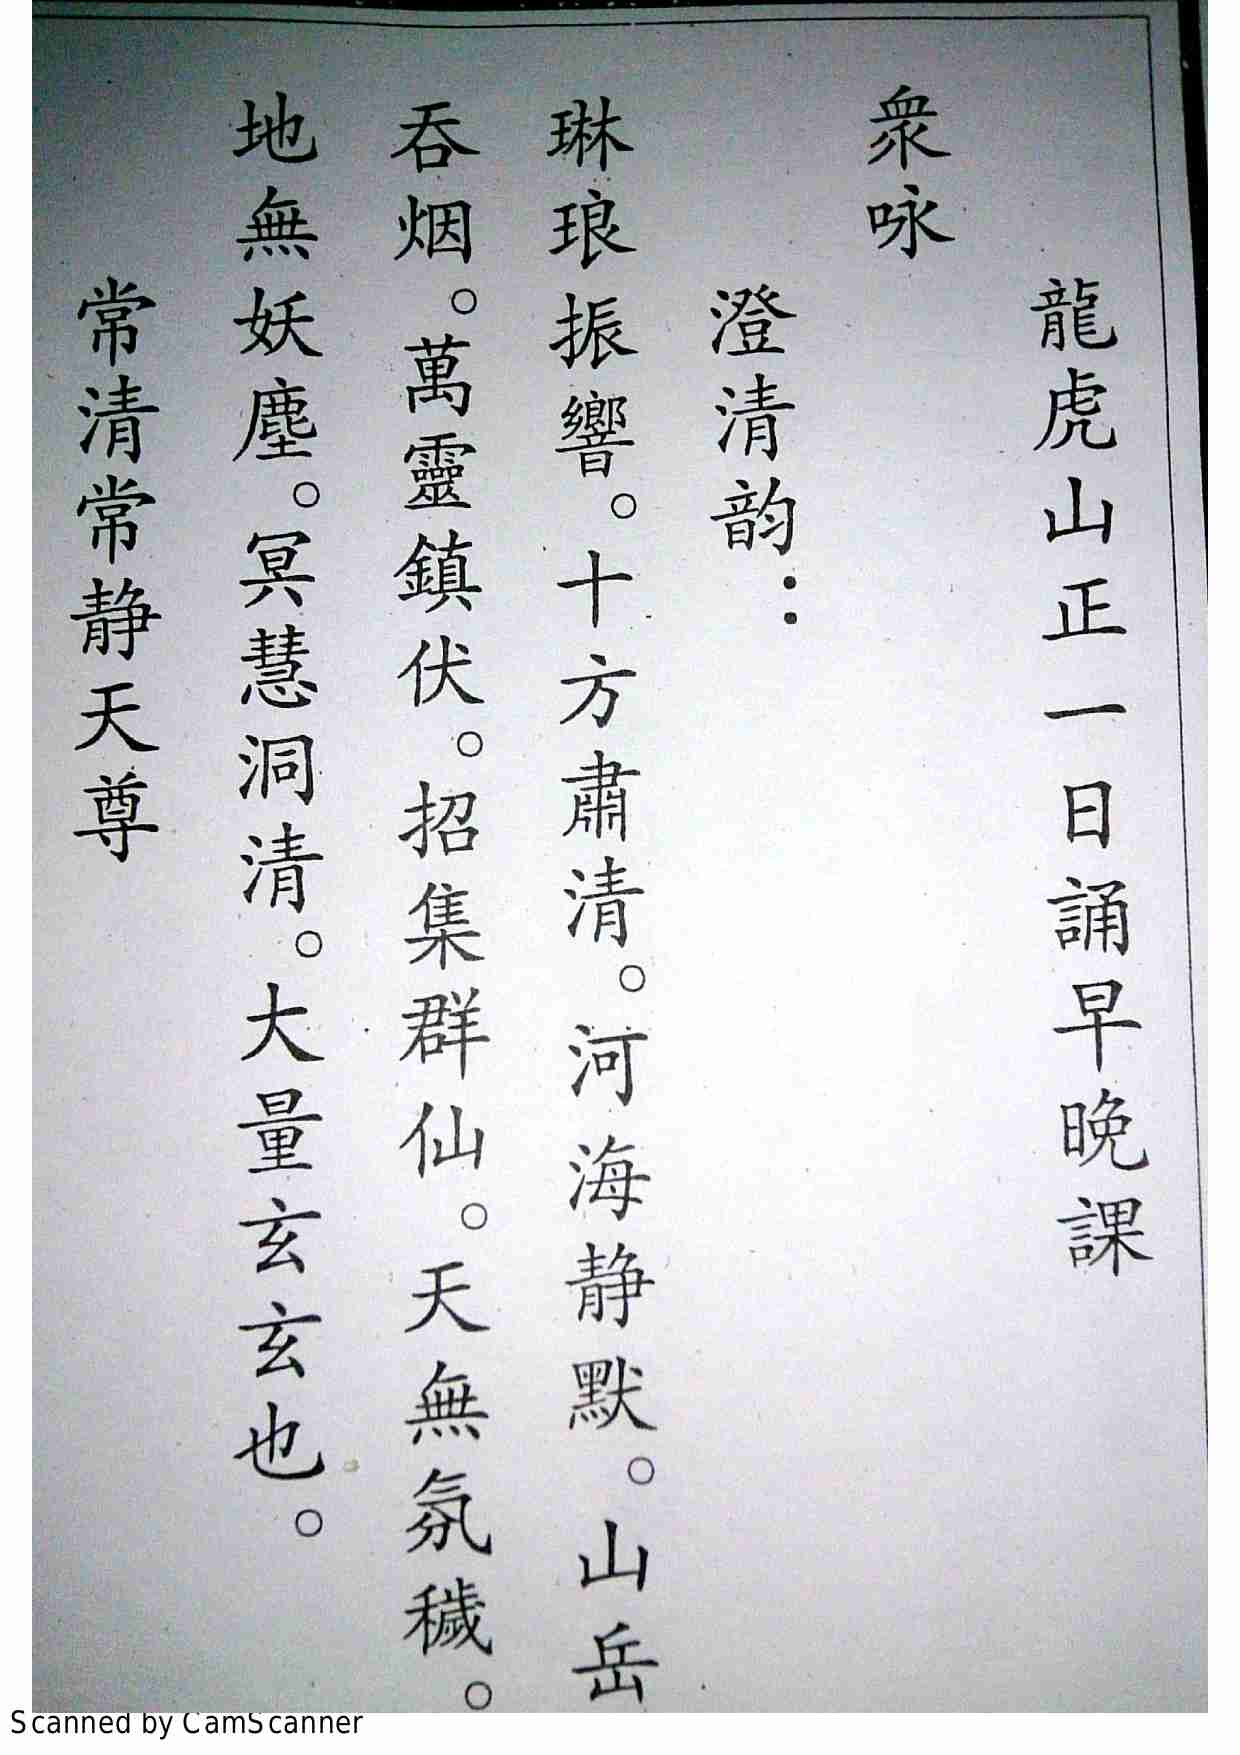 龍虎山正一日誦早晚課
衆咏
澄清韵：
琳琅振響。十方肅清。河海静默。山岳
吞烟。萬靈鎮伏。招集群仙。天無氛穢。
地無妖塵。冥慧洞清。大量玄玄也。
常清常静天尊
Scanned by CamScanner